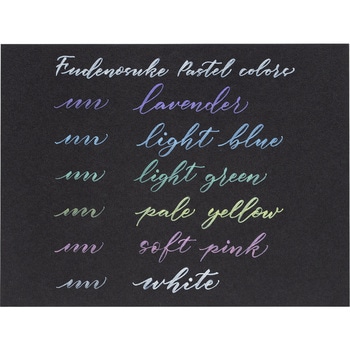 Fudenosuke Pastel colors
lavender
light blue
light green
pale yellow
soft pink
white